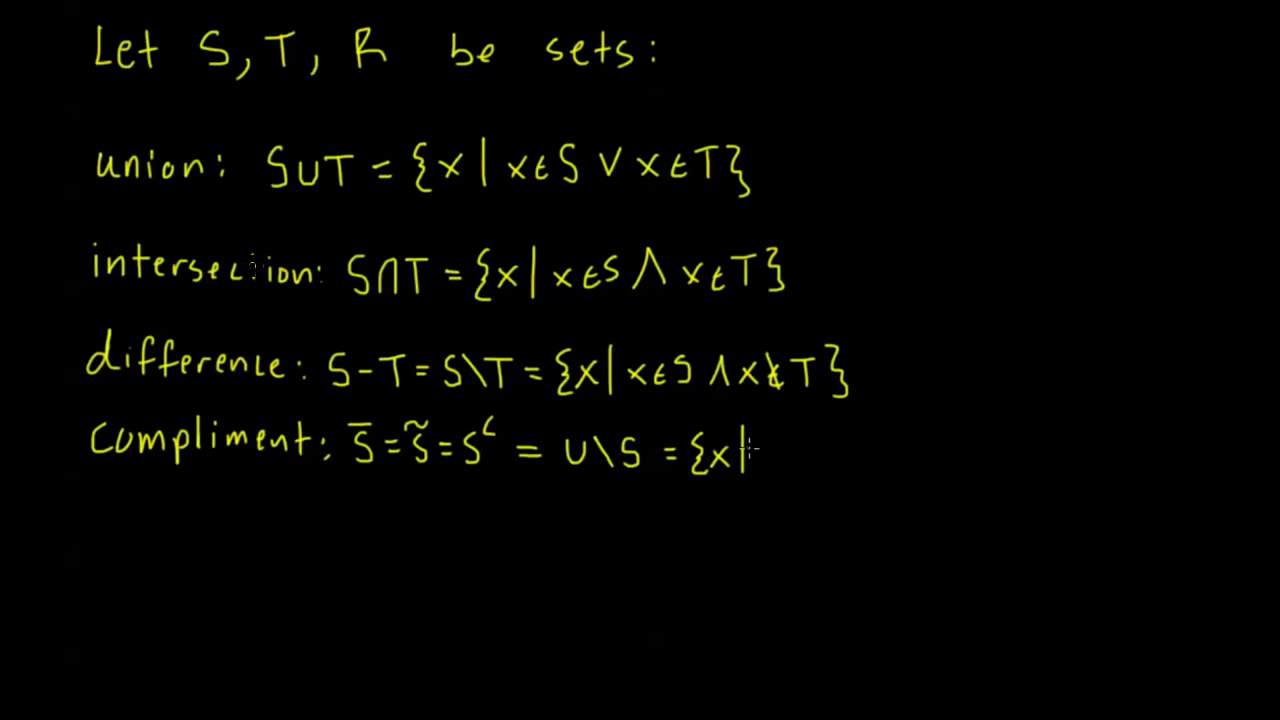 Let S, T, R be sets:
union: S∪T = {x | x∈S ∨ x∈T}
intersection: S∩T = {x | x∈S ∧ x∈T}
difference: S-T = S\T = {x | x∈S ∧ x∉T}
compliment: S̅ = S̃ = Sᶜ = U\S = {x |